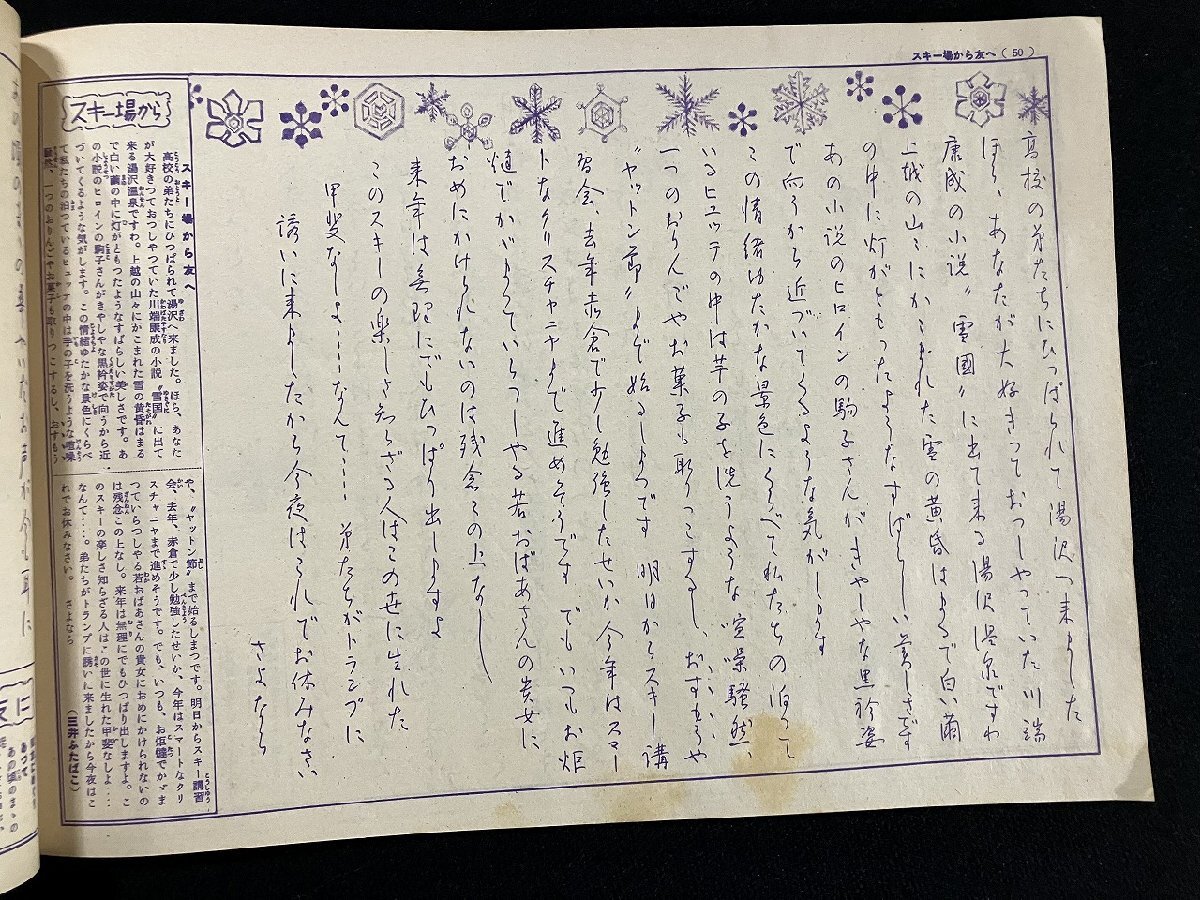 スキー場から友へ（50）
高校の弟たちにひっぱられて湯沢へ来ました
ほら、あなたが大好きっておっしやっていた川端
康成の小説〝雪國〟に出て来る湯沢温泉ですわ
上越の山々にかこまれた雪の黄昏はまるで白い繭
の中に灯がともったようなすばらしい美しさです
あの小説のヒロインの駒子さんがきやしやな黒衿姿
で向うから近づいてくるような気がします
この情緒ゆたかな景色にくらべて私たちの泊って
いるヒュッテの中は芋の子を洗うような喧噪騒然、
一つのおりんごやお菓子も取りっこするし、おすもうや
〝ヤットン節〟まで始るしまつです 明日からスキー講
習会、去年赤倉で少し勉強したせいか今年はスマー
トなクリスチャニヤまで進めそうです でもいつもお炬
燵でかがまっていらっしやる若おばあさんの貴女に
おめにかけられないのは残念この上なし
来年は無理にでもひっぱり出しますよ
このスキーの楽しさ知らざる人はこの世に生れた
甲斐なしよ……なんて…… 弟たちがトランプに
誘いに来ましたから今夜はこれでお休みなさい
さよなら
スキー場から
スキー場から友へ
高校の弟たちにひっぱられて湯沢へ来ました。ほら、あなた
が大好きつておつしやつていた川端康成の小説〝雪国〟に出て
来る湯沢温泉ですわ。上越の山々にかこまれた雪の黄昏はまる
で白い繭の中に灯がともつたようなすばらしい美しさです。あ
の小説のヒロインの駒子さんがきやしやな黒衿姿で向うから近
づいてくるような気がします。この情緒ゆたかな景色にくらべ
て私たちの泊つているヒュッテの中は芋の子を洗うような喧噪
騒然、一つのおりんごやお菓子も取りつこするし、おすもう
や、〝ヤットン節〟まで始るしまつです。明日からスキー講習
会、去年、赤倉で少し勉強したせいか、今年はスマートなクリ
スチャニヤまで進めそうです。でも、いつも、お炬燵でかゞま
つていらつしやる若おばあさんの貴女におめにかけられないの
は残念この上なし。来年は無理にでもひつぱり出しますよ。こ
のスキーの楽しさ知らざる人はこの世に生れた甲斐なしよ‥‥
なんて‥‥。弟たちがトランプに誘いに来ましたから今夜はこ
れでお休みなさい。 さよなら
（三井ふたばこ）